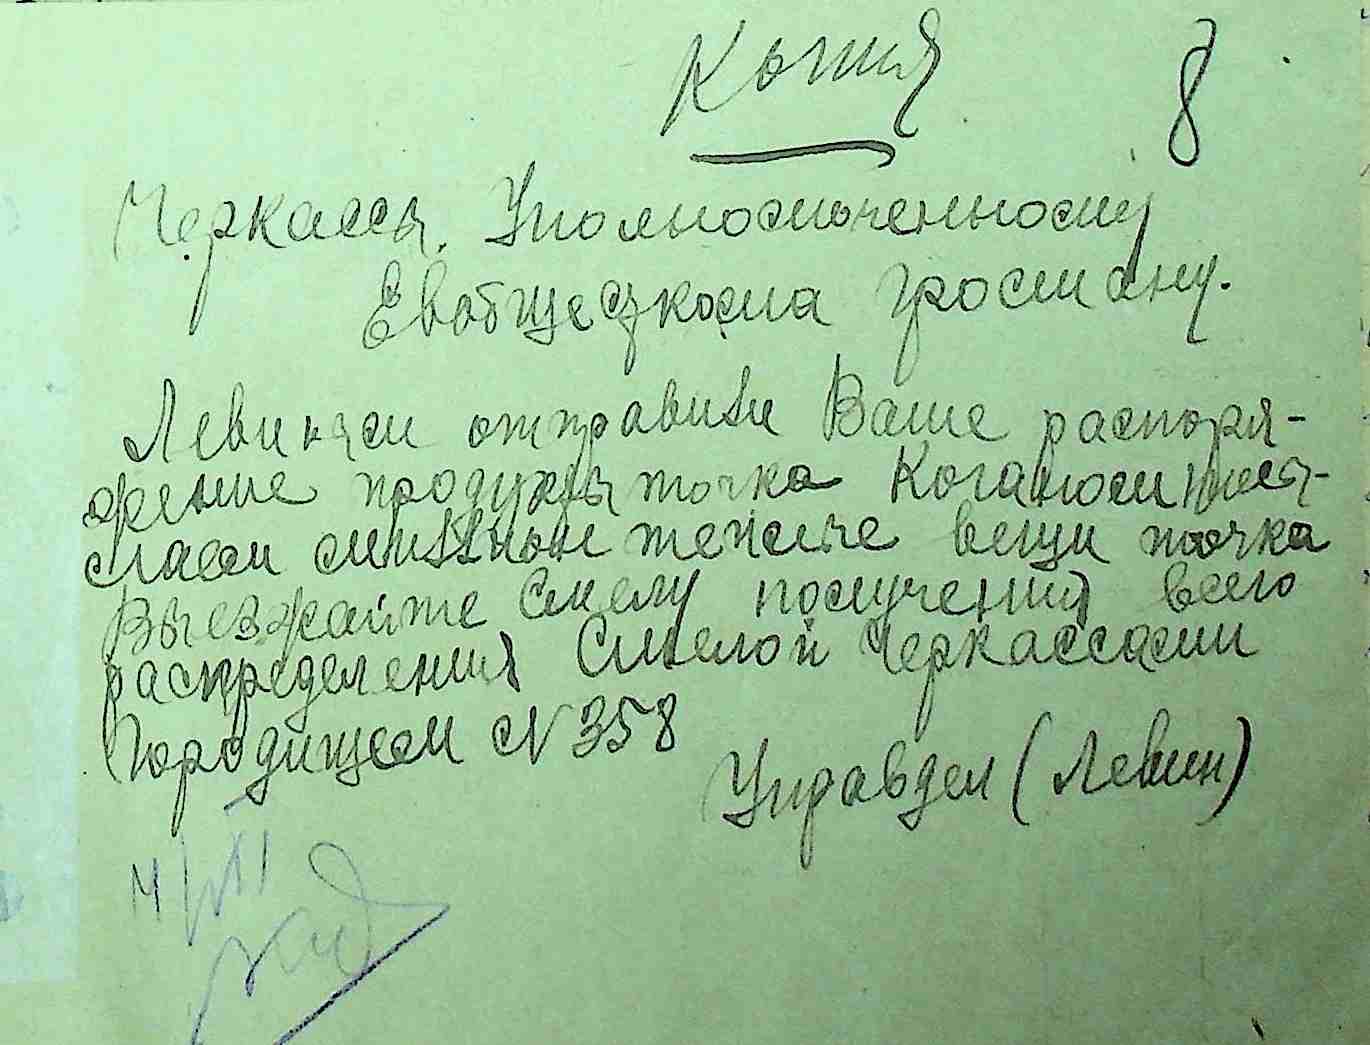 Копия
8
Черкассы. Уполномоченному
Евобщесткома Гросману.
Левиным отправили Ваше распоря-
жение продукты точка Коганом
смешные теплые вещи точка
Выезжайте Смелу получения всего
распределения Смелой Черкассами
Городищем N 358
Управдел (Левин)